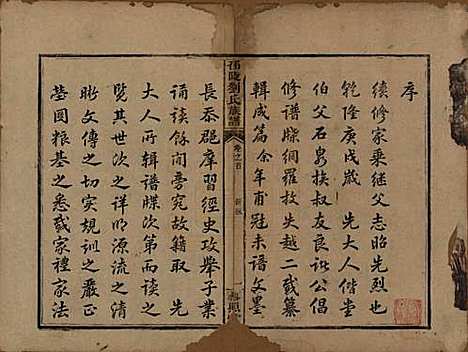 序
續修家乘继父志昭先烈也
乾隆庚戌歲 先大人偕堂
伯父石泉挨叔友諒公倡
修譜牒綱羅放失越二載纂
輯成篇余年甫冠未諳文墨
邵陵劉氏族譜
卷之首
長泰郡摩習經史攻舉子業
誦讀餘閒旁究故籍取 先
大人所輯譜牒次第而讀之
覽其世次之詳明源流之清
晰文傳之切實規訓之嚴正
塋圖粮基之悉載家禮家法